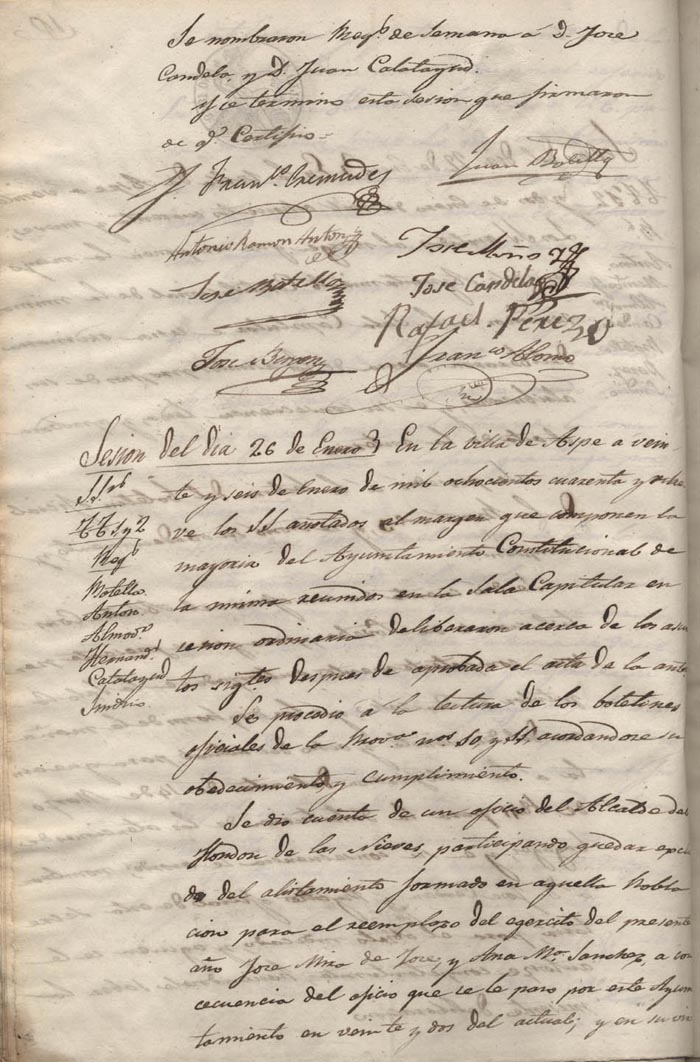 Se nombraron Regs. de Semana á D. Jose
Candela, y D. Juan Calatayud.
Y se termino esta sesion que firmaron
de q. Certifico.
Franco. Cremades
Juan Botella
Antonio Ramon Anton
Jose Miño
Jose Botella
Jose Candela
Rafael Perez
Jose Berpen
Franco. Alonso
Sesion del dia 26 de Enero
En la villa de Aspe a vein-
te y seis de Enero de mil ochocientos cuarenta y
ve los SS. anotados al margen que componen la
mayoria del Ayuntamiento Constitucional de
la misma reunidos en la Sala Capitular en
cesion ordinaria deliberaron acerca de los asun
tos sigtes. despues de aprobada el acta de la antr.
SS.res
TT. 1 y 2
Regs.
Botella
Anton
Almodr.
Hernandz.
Calatayud
Sindico
Se procedio á la lectura de los boletines
oficiales de la Prova. nos. 10 y 11 acordandose su
obedecimiento y cumplimiento.
Se dio cuenta de un oficio del Alcalde del
Hondon de las Nieves, participando quedar
do del alistamiento formado en aquella Pobla
cion para el reemplazo del egercito del presente
año Jose Mira de Jose, y Ana Ma. Sanchez, a con
cecuencia del oficio que se le paso por este Ayun
tamiento en veinte y dos del actual; y en su vir